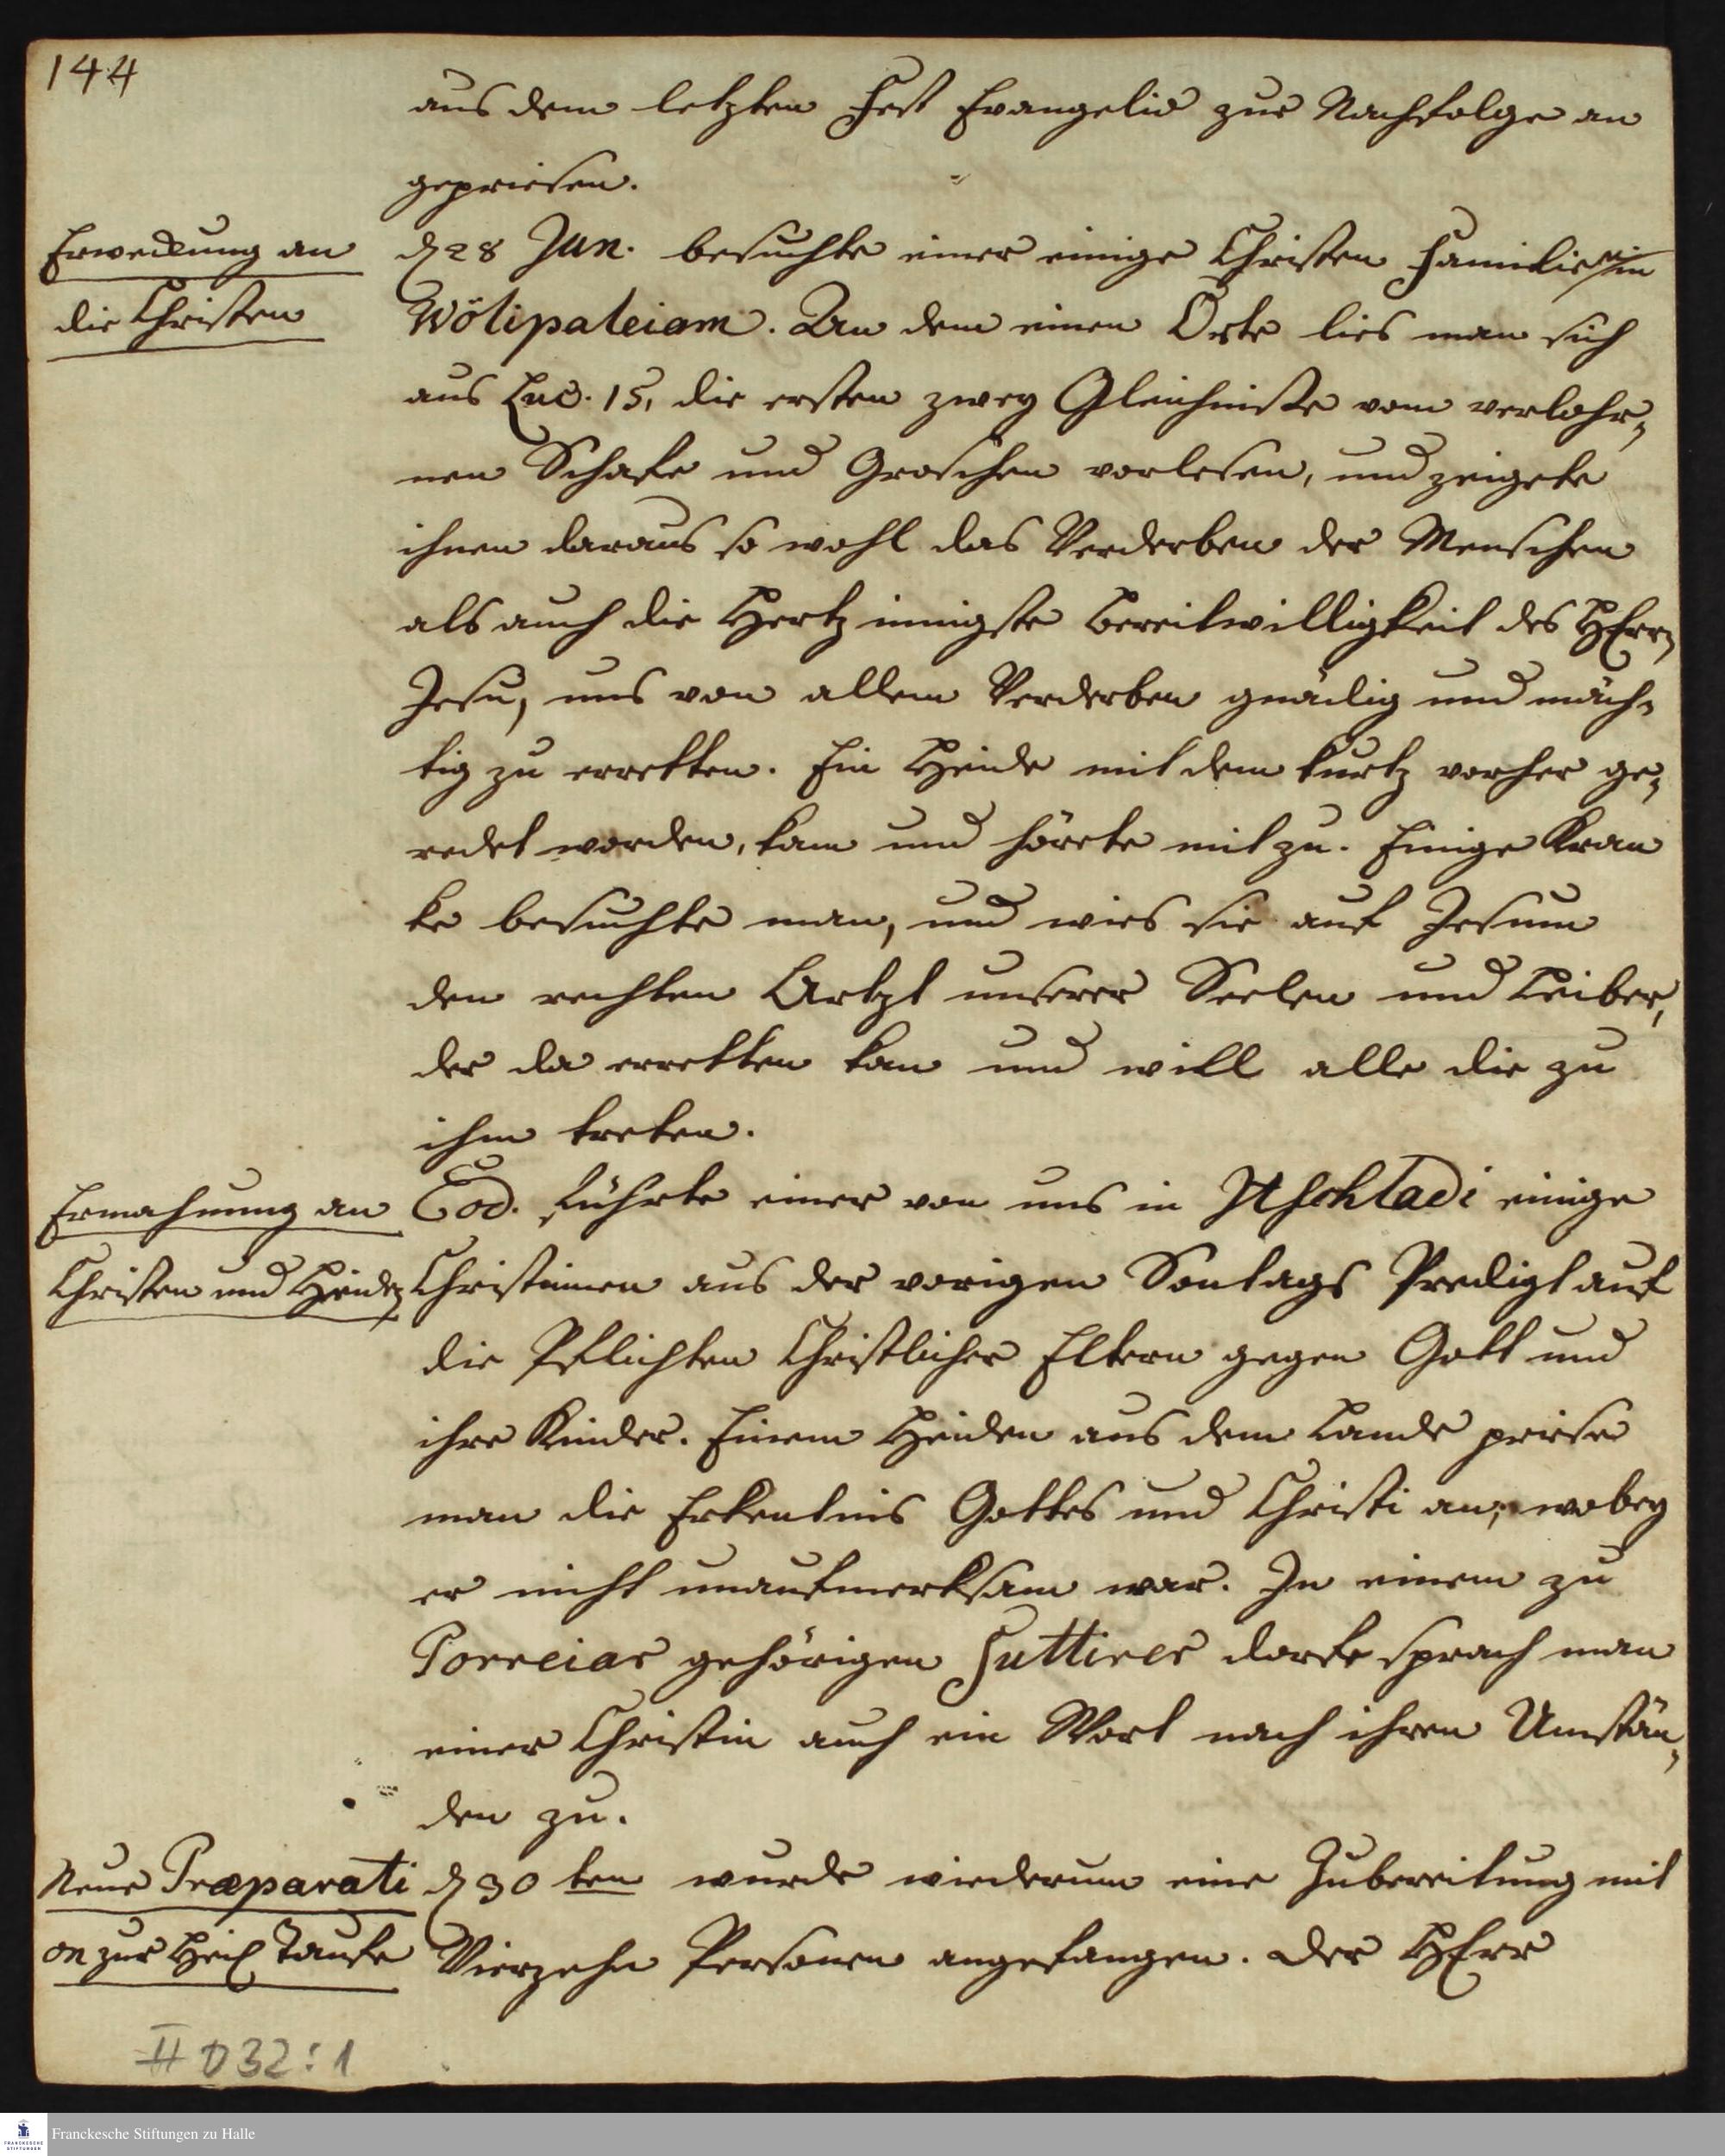 144
aus dem letzten Fest Evangelio zur Nachfolge an
gepriesen.
Erweckung an
die Christen
d 28 Jun. besuchte einer einige Christen Familien in
Wölipaleiam. An dem einen Orte lies man sich
aus Luc. 15, die ersten zwey Gleichniße vom verlohr-
nen Schafe und Groschen vorlesen, und zeigete
ihnen daraus so wohl das Verderben der Menschen
als auch die Hertz innigste Bereitwilligkeit des HErrn
Jesu, uns von allem Verderben gnädig und mäch-
tig zu erretten. Ein Heide mit dem kurtz vorher ge-
redet worden, kam und hörete mit zu. Einige Kran
ke besuchte man, und wies sie auf Jesum
den rechten Artzt unserer Seelen und Leiber,
der da erretten kan und will alle die zu
ihm treten.
Ermahnung an
Christen und Heiden
Eod. führte einer von uns in Itschladi einige
Christinnen aus der vorigen Sontags Predigt auf
die Pflichten Christlicher Eltern gegen Gott und
ihre Kinder. Einem Heiden aus dem Lande priese
man die Erkentnis Gottes und Christi an, wobey
er nicht unaufmerksam war. In einem zu
Porreiar gehörigen Suttirer dorfe sprach man
einer Christin auch ein Wort nach ihren Umstän-
den zu.
Neue Præparati
on zur Heil Taufe
d 30 ten wurde wiederum eine Zubereitung mit
Vierzehn Personen angefangen. Der HErr
II D32:1
FRANCKESCHE
STIFTUNGEN
Franckesche Stiftungen zu Halle